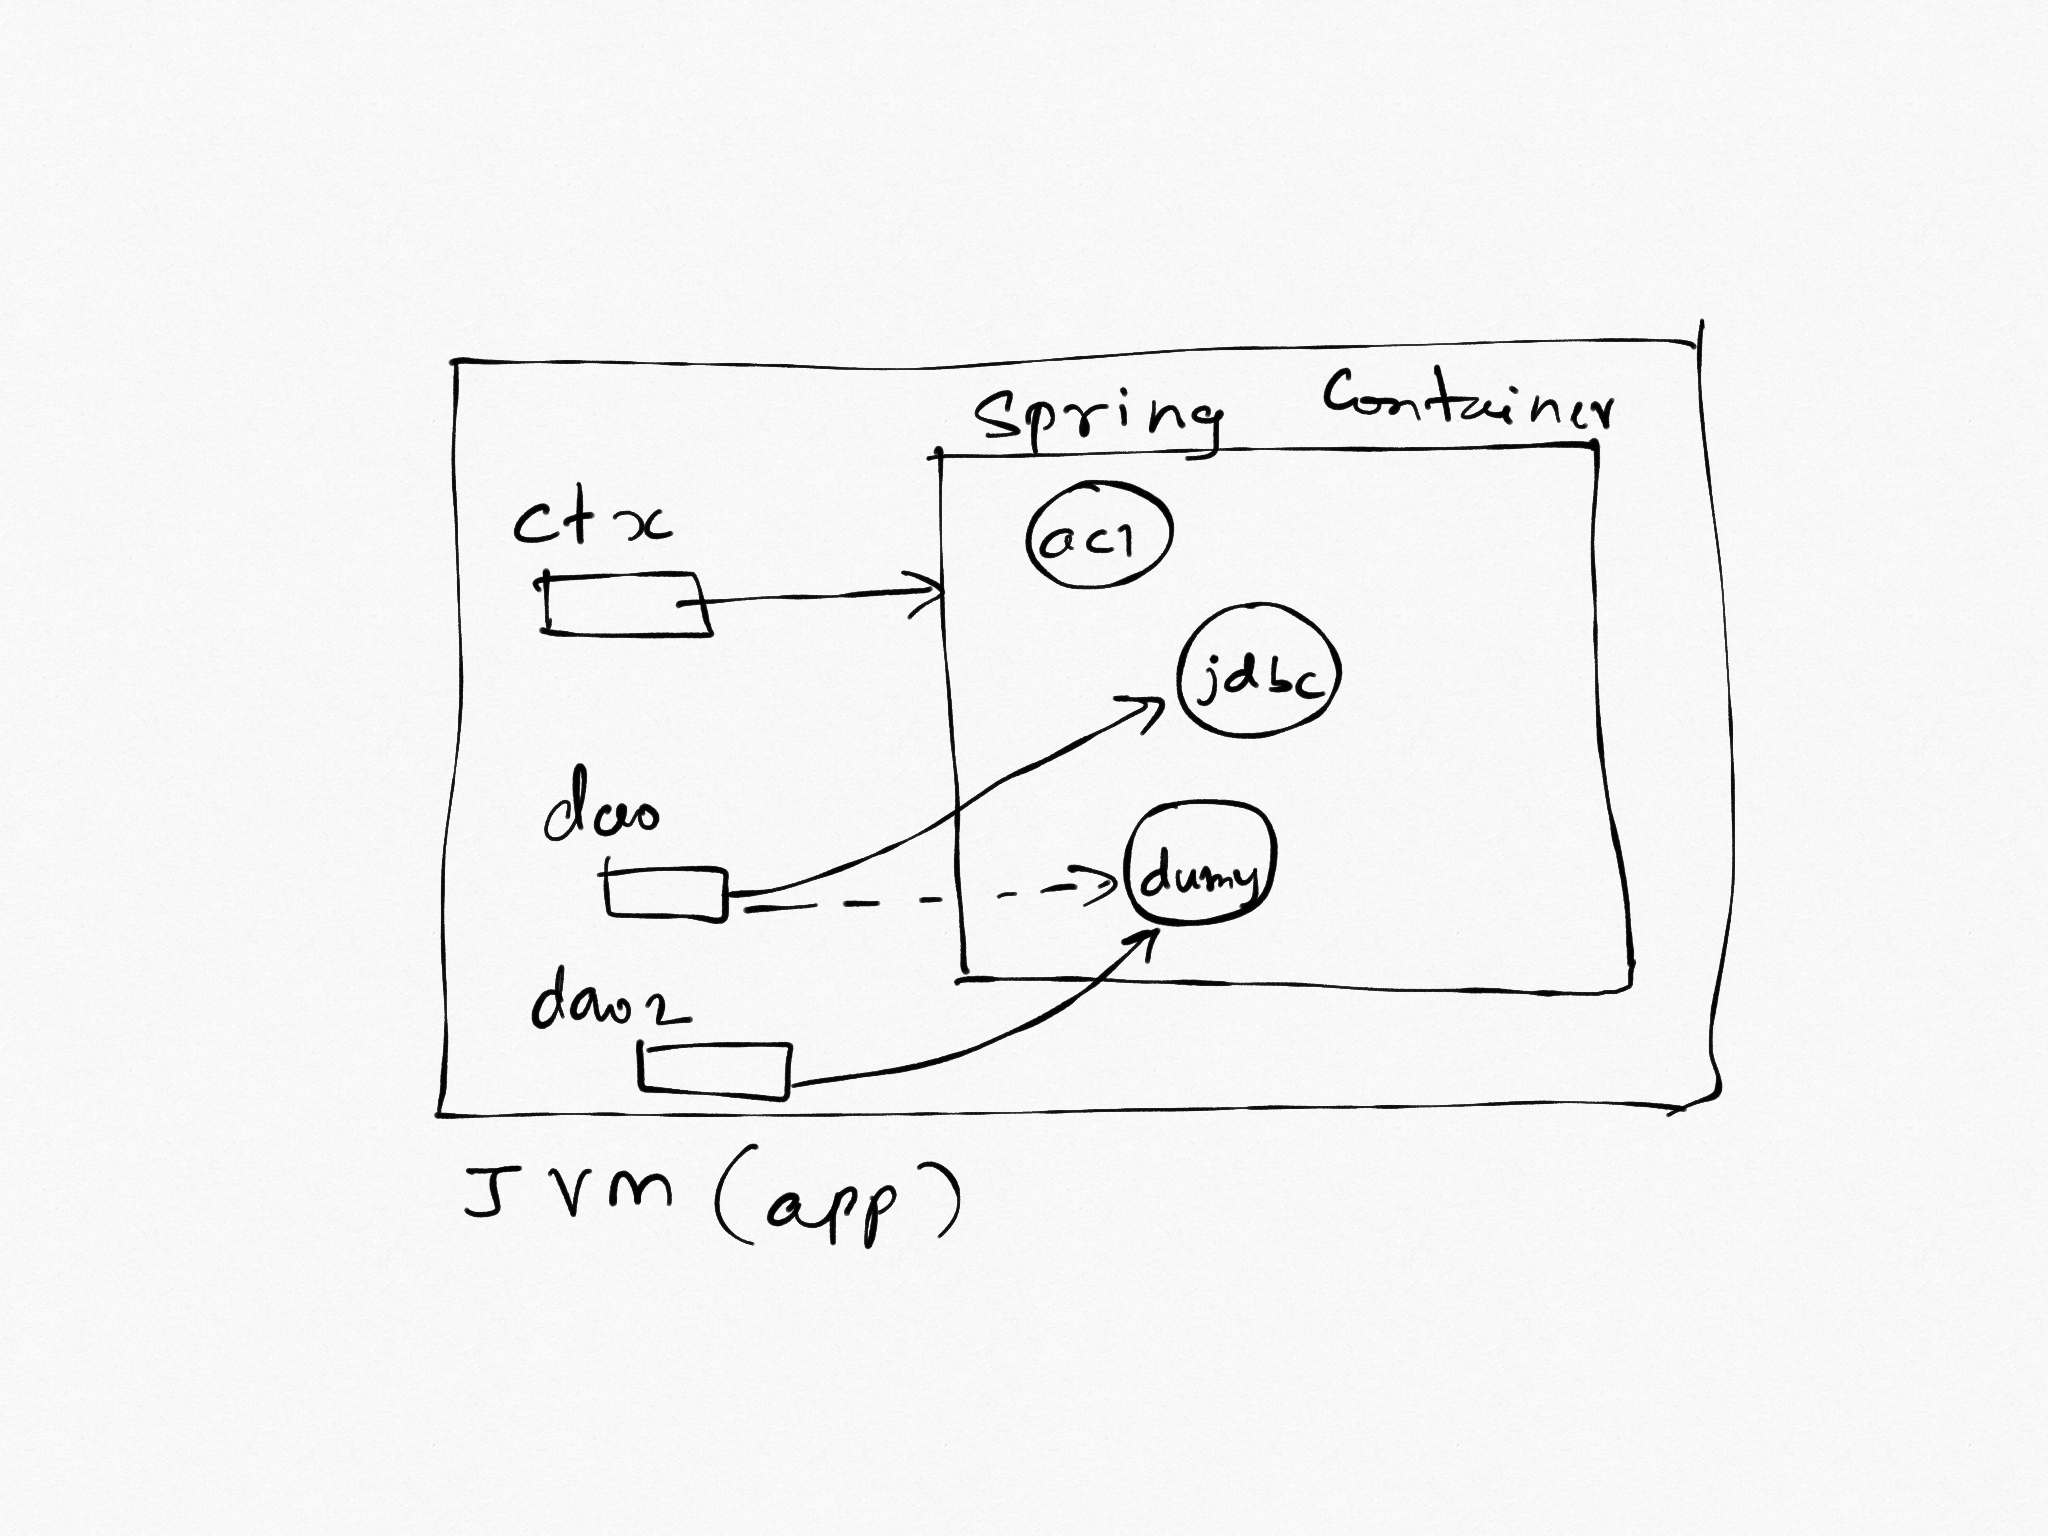 Spring Container
ctx
ac1
jdbc
dao
dumy
dao2
JVM (app)